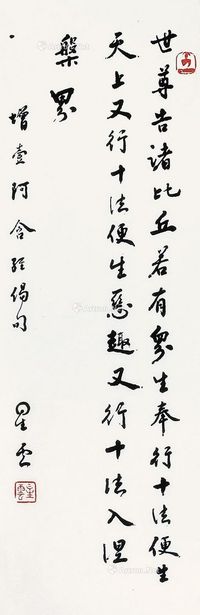 世尊告諸比丘若有眾生奉行十法便生
天上又行十法便生惡趣又行十法入涅
槃界
增壹阿含經偈句
星雲
星雲